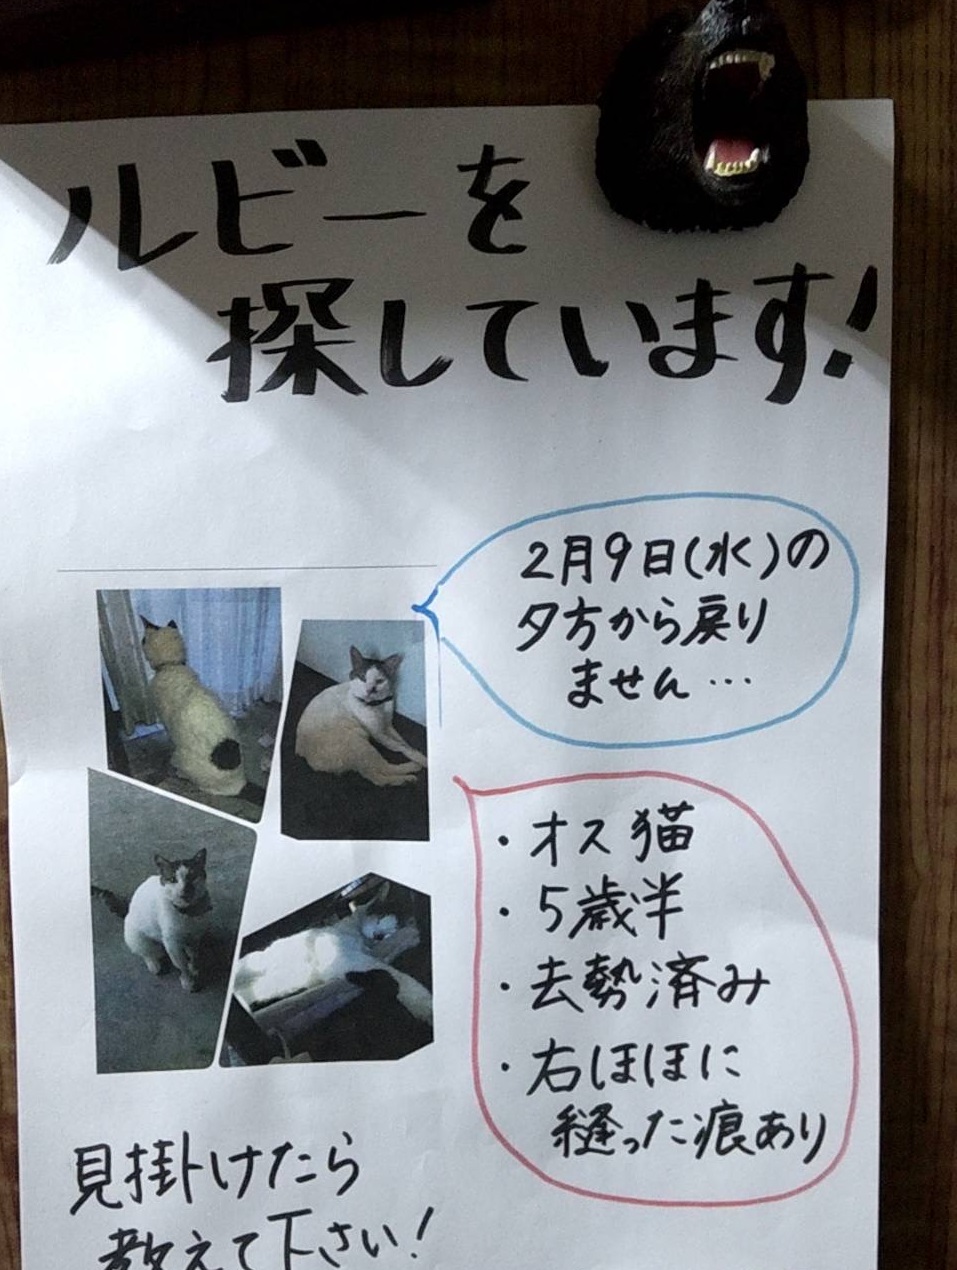 ルビーを
探しています!
2月9日(水)の
夕方から戻り
ません…
・オス猫
・5歳半
・去勢済み
・右ほほに
縫った痕あり
見掛けたら
教えて下さい!